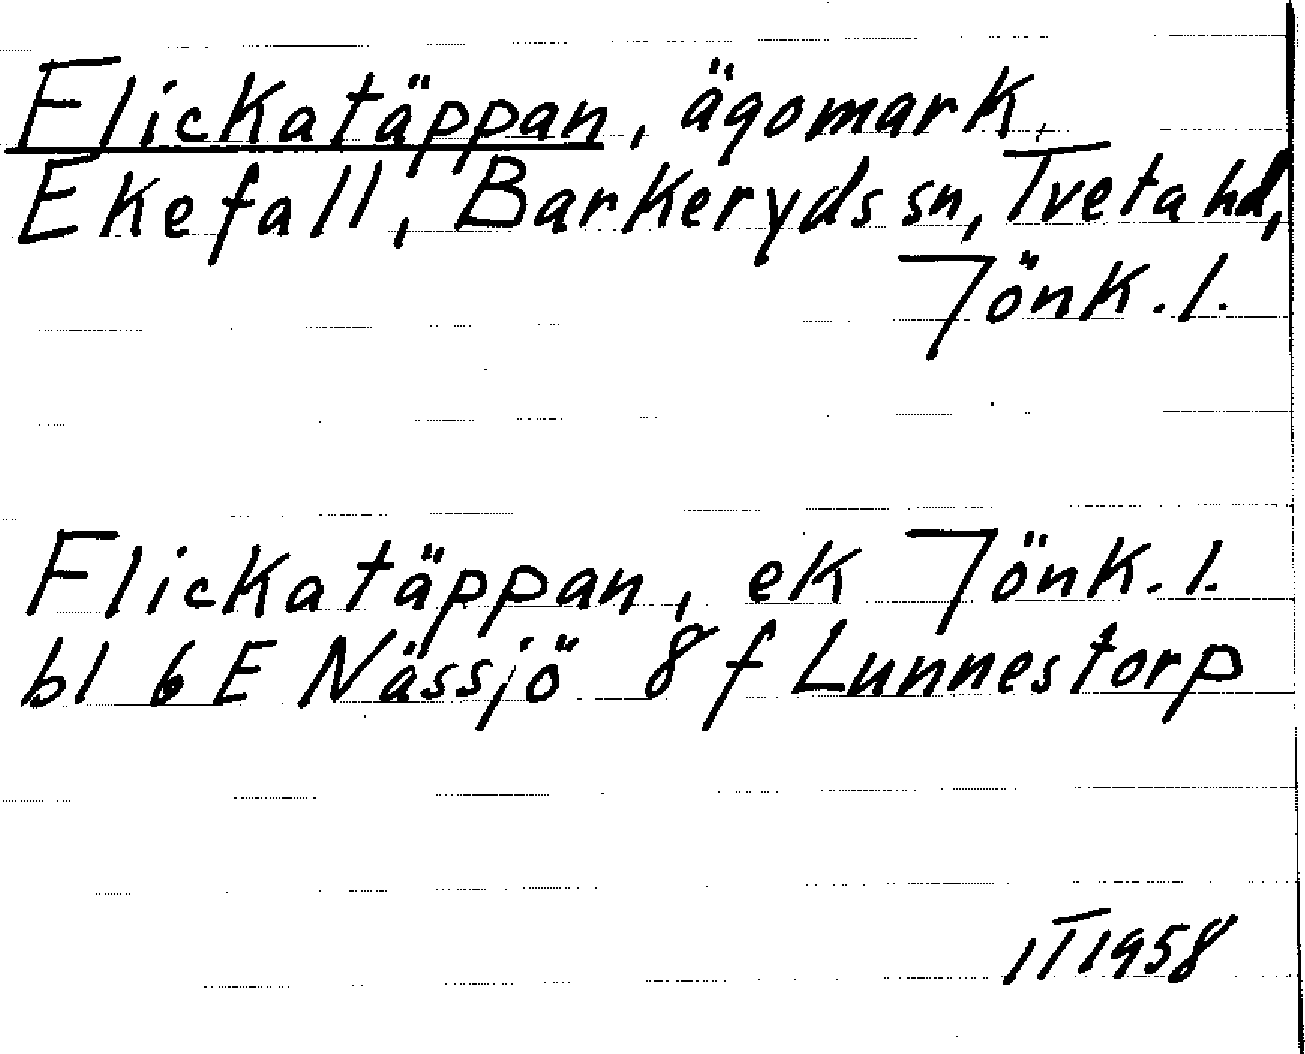 Flickatäppan, ägomark,
Ekefall, Barkeryds sn, Tveta hd,
Jönk. l.
Flickatäppan, ek Jönk. l.
bl 6 E Nässjö 8 f Lunnestorp
1958